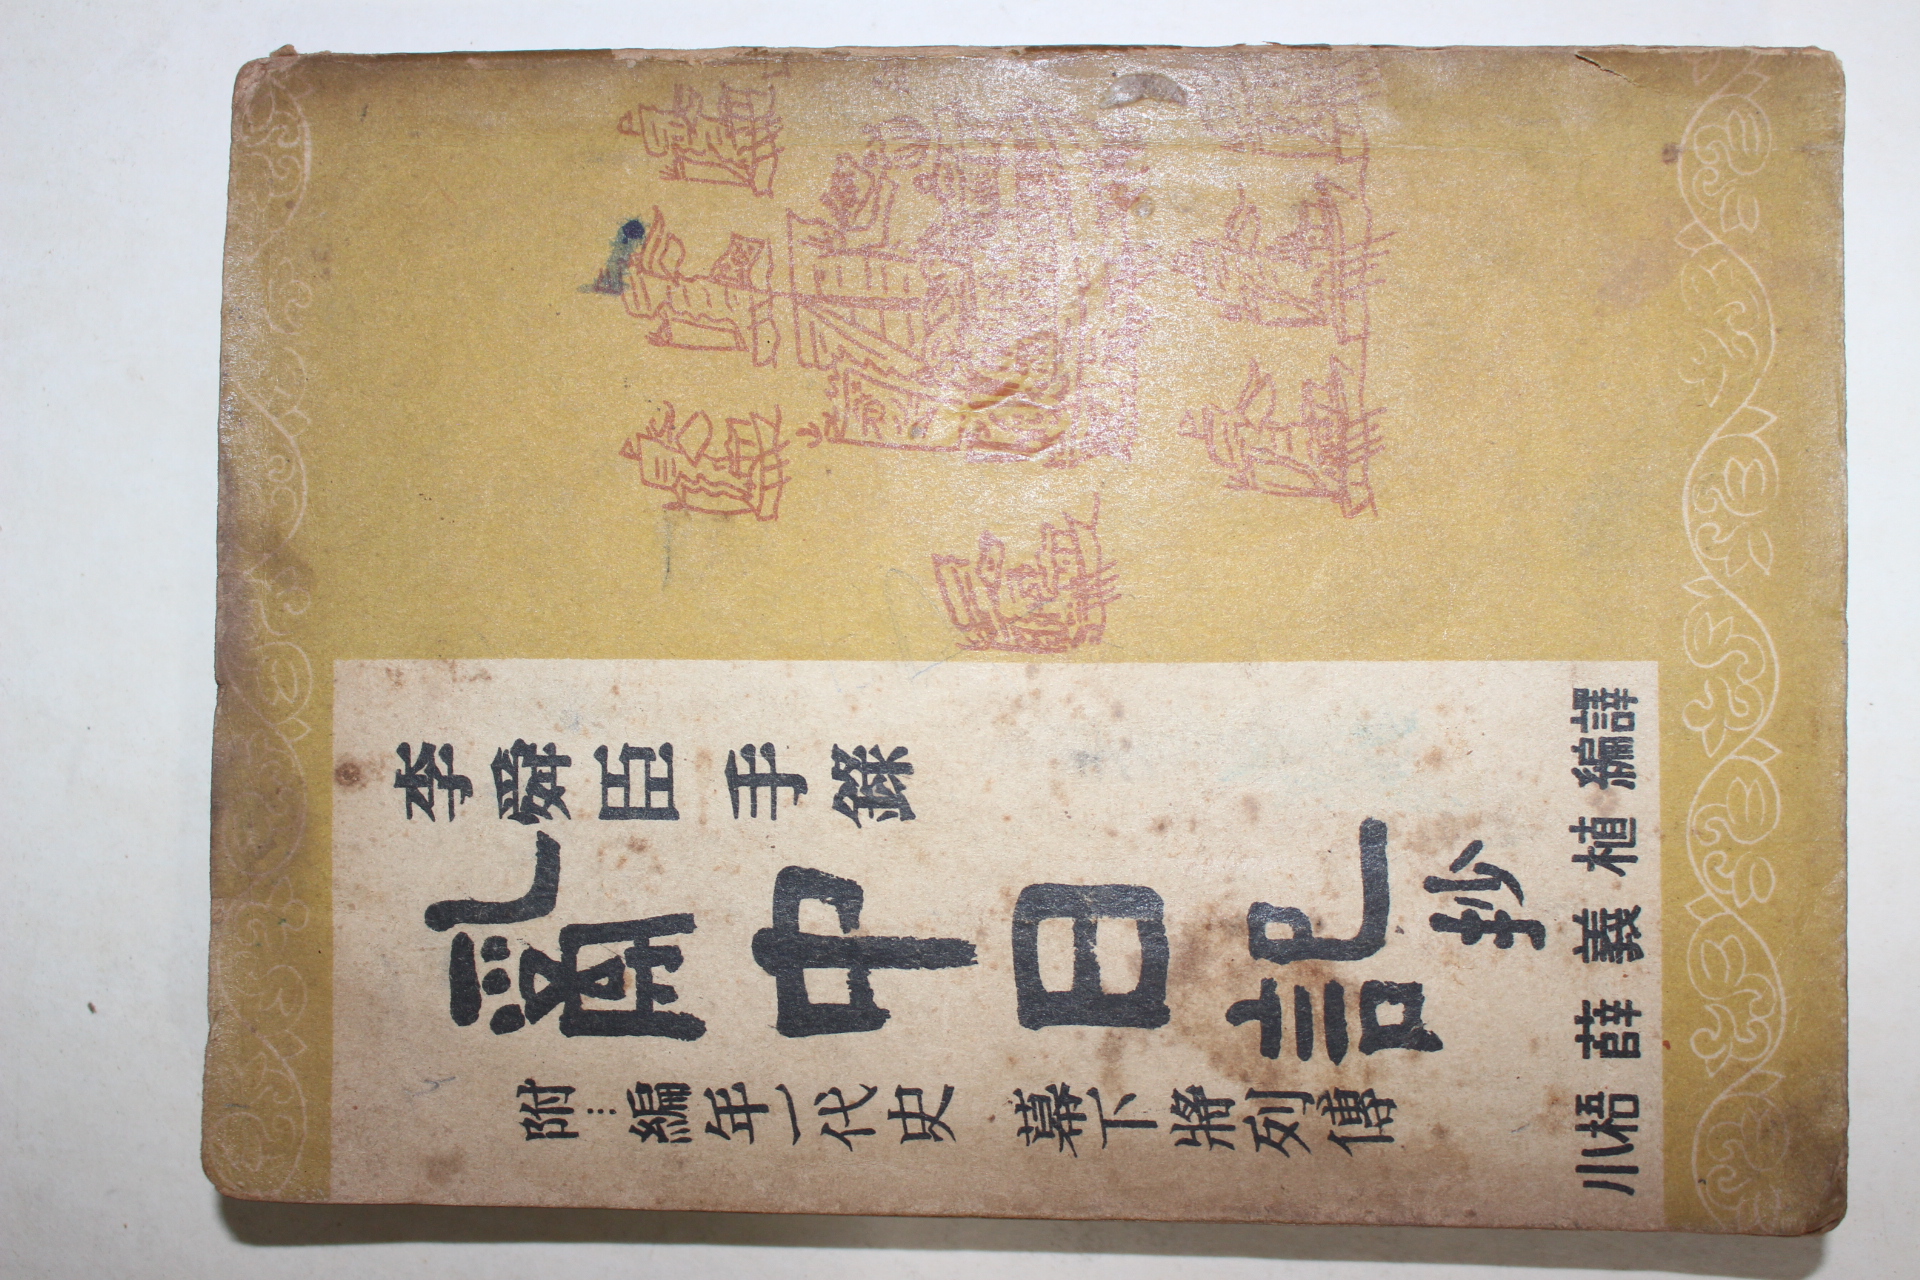 李舜臣手錄
亂中日記抄
附…編年一代史 幕下將列傳
小梧 薛義植 編譯